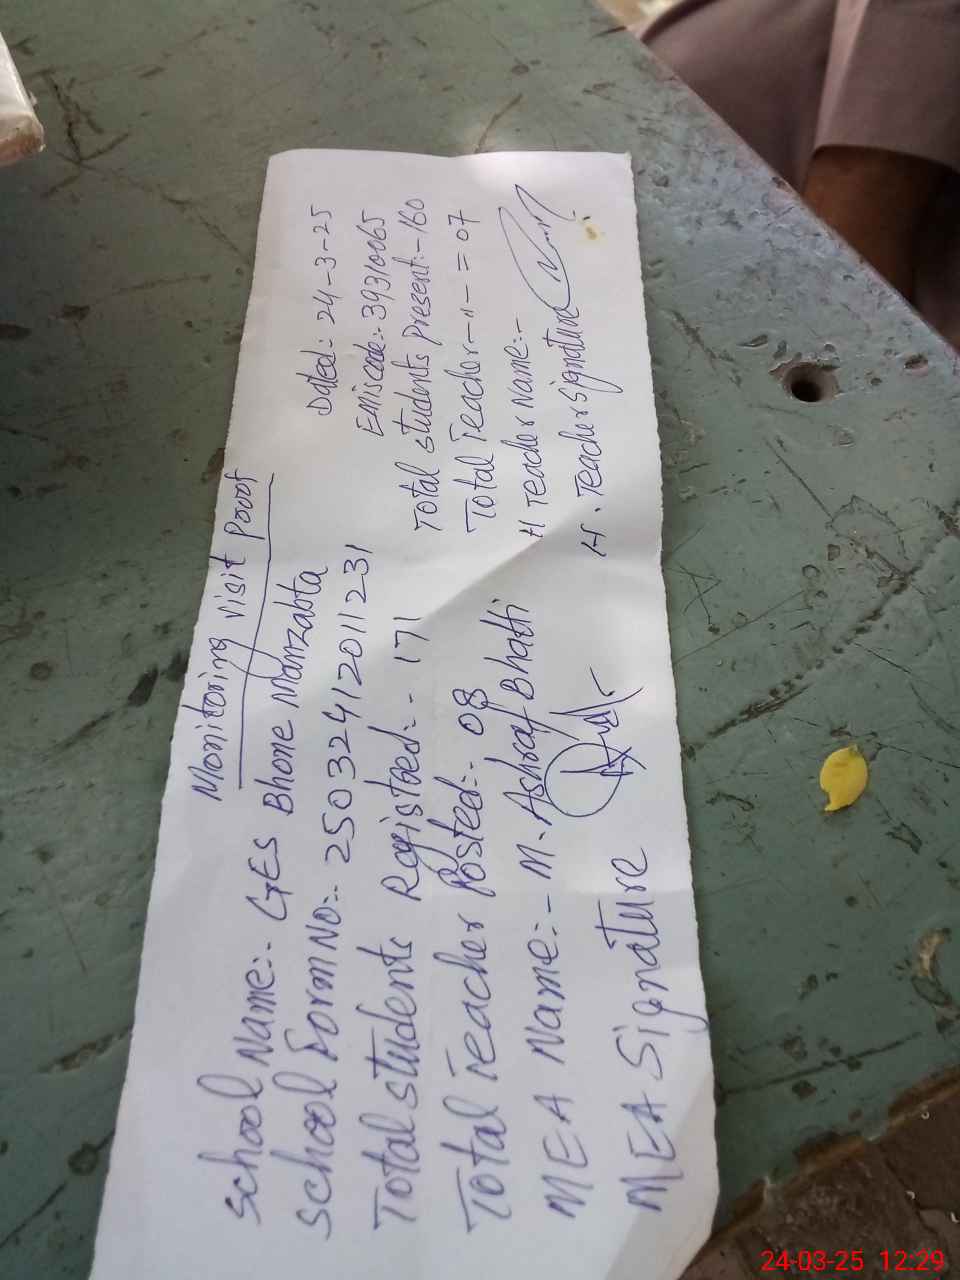 Monitoring visit Poof
School Name:- GES Bhone Manzabta
Dated:- 24-3-25
School Form NO:- 2503241201 1231
Emiscode:- 39310065
Total students Registred:- 171
Total students Present:- 160
Total Teacher Posted:- 08
Total Teacher - " - = 07
MEA Name:- M. Ashraf Bhatti
H Teacher Name:-
MEA Signature
H. Teacher Signature
24-03-25 12:29